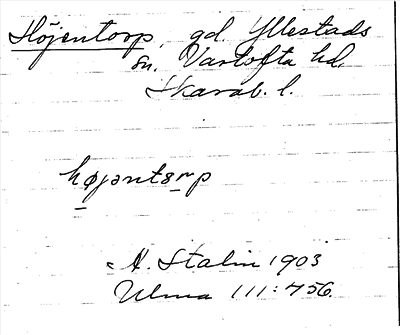 Höjentorp, gd. Yllestads
sn. Vartofta hd.
Skarab. l.
højəntərp
A. Stalin 1903
Ulma 111:456.